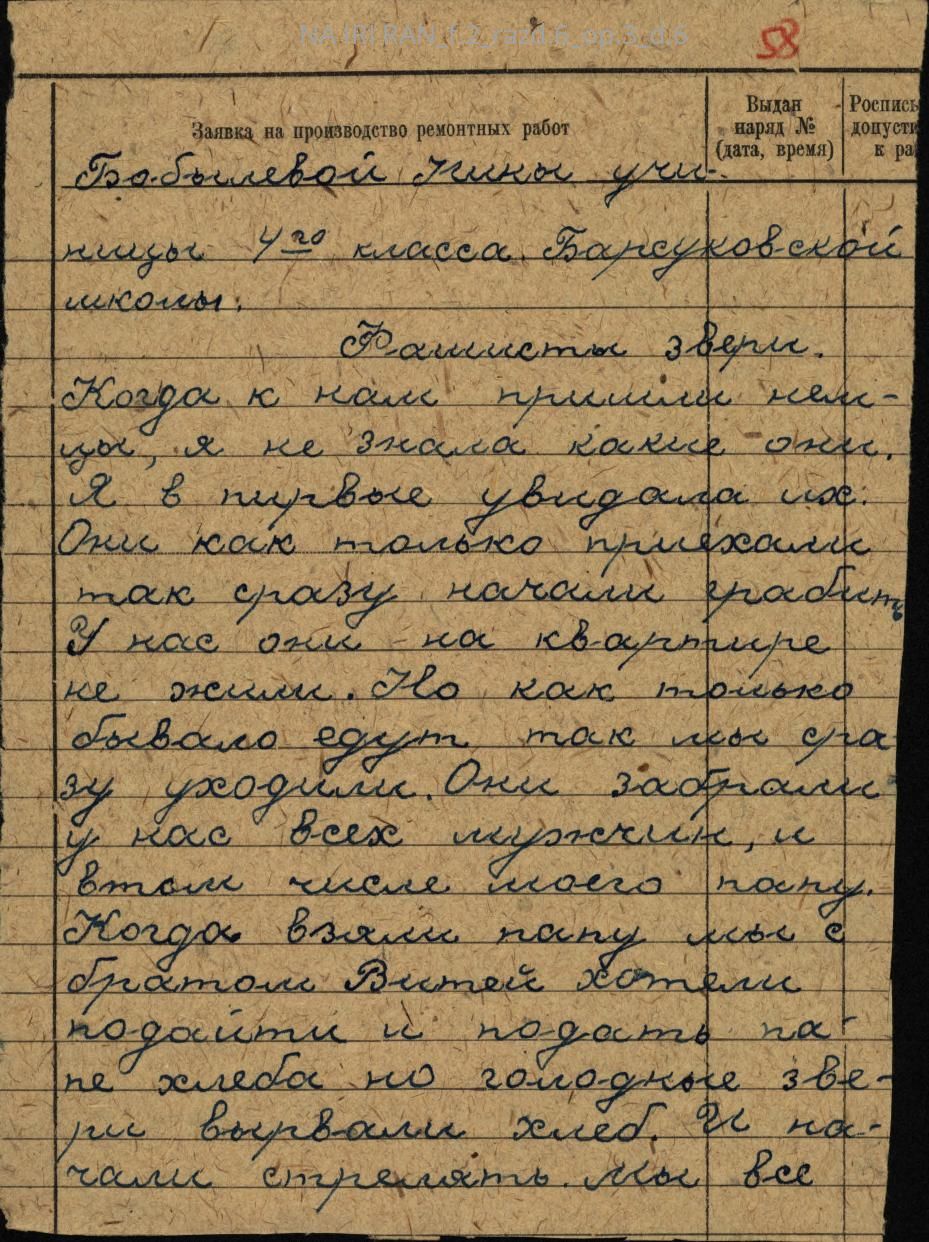 NA IRI RAN_f.2_razd.6_op.3_d.6
58
Заявка на производство ремонтных работ
Выдан
наряд №
(дата, время)
Роспись
допусти
к ра
Бобылевой Нины учи-
ницы 4го класса Барсуковской
школы.
Фашисты звери.
Когда к нам пришли нем-
цы, я не знала какие они.
Я в пирвые увидала их.
Они как только приехали
так сразу начали грабить
У нас они на квартире
не жили. Но как только
бывало едут так мы сра
зу уходили. Они забрали
у нас всех мужчин, и
втом числе моего папу.
Когда взяли папу мы с
братом Витей хотели
подайти и подать па-
пе хлеба но голодные зве-
ри вырвали хлеб. И на-
чали стрелять. Мы все